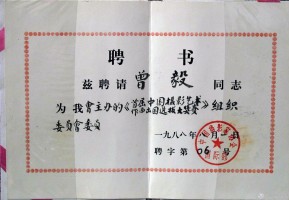 聘书
兹聘请曾毅同志
为我会主办的《首届中国摄影艺术
作品出国选拔大奖赛》组织
委员会委员
一九八八年八月一日
聘字第06号